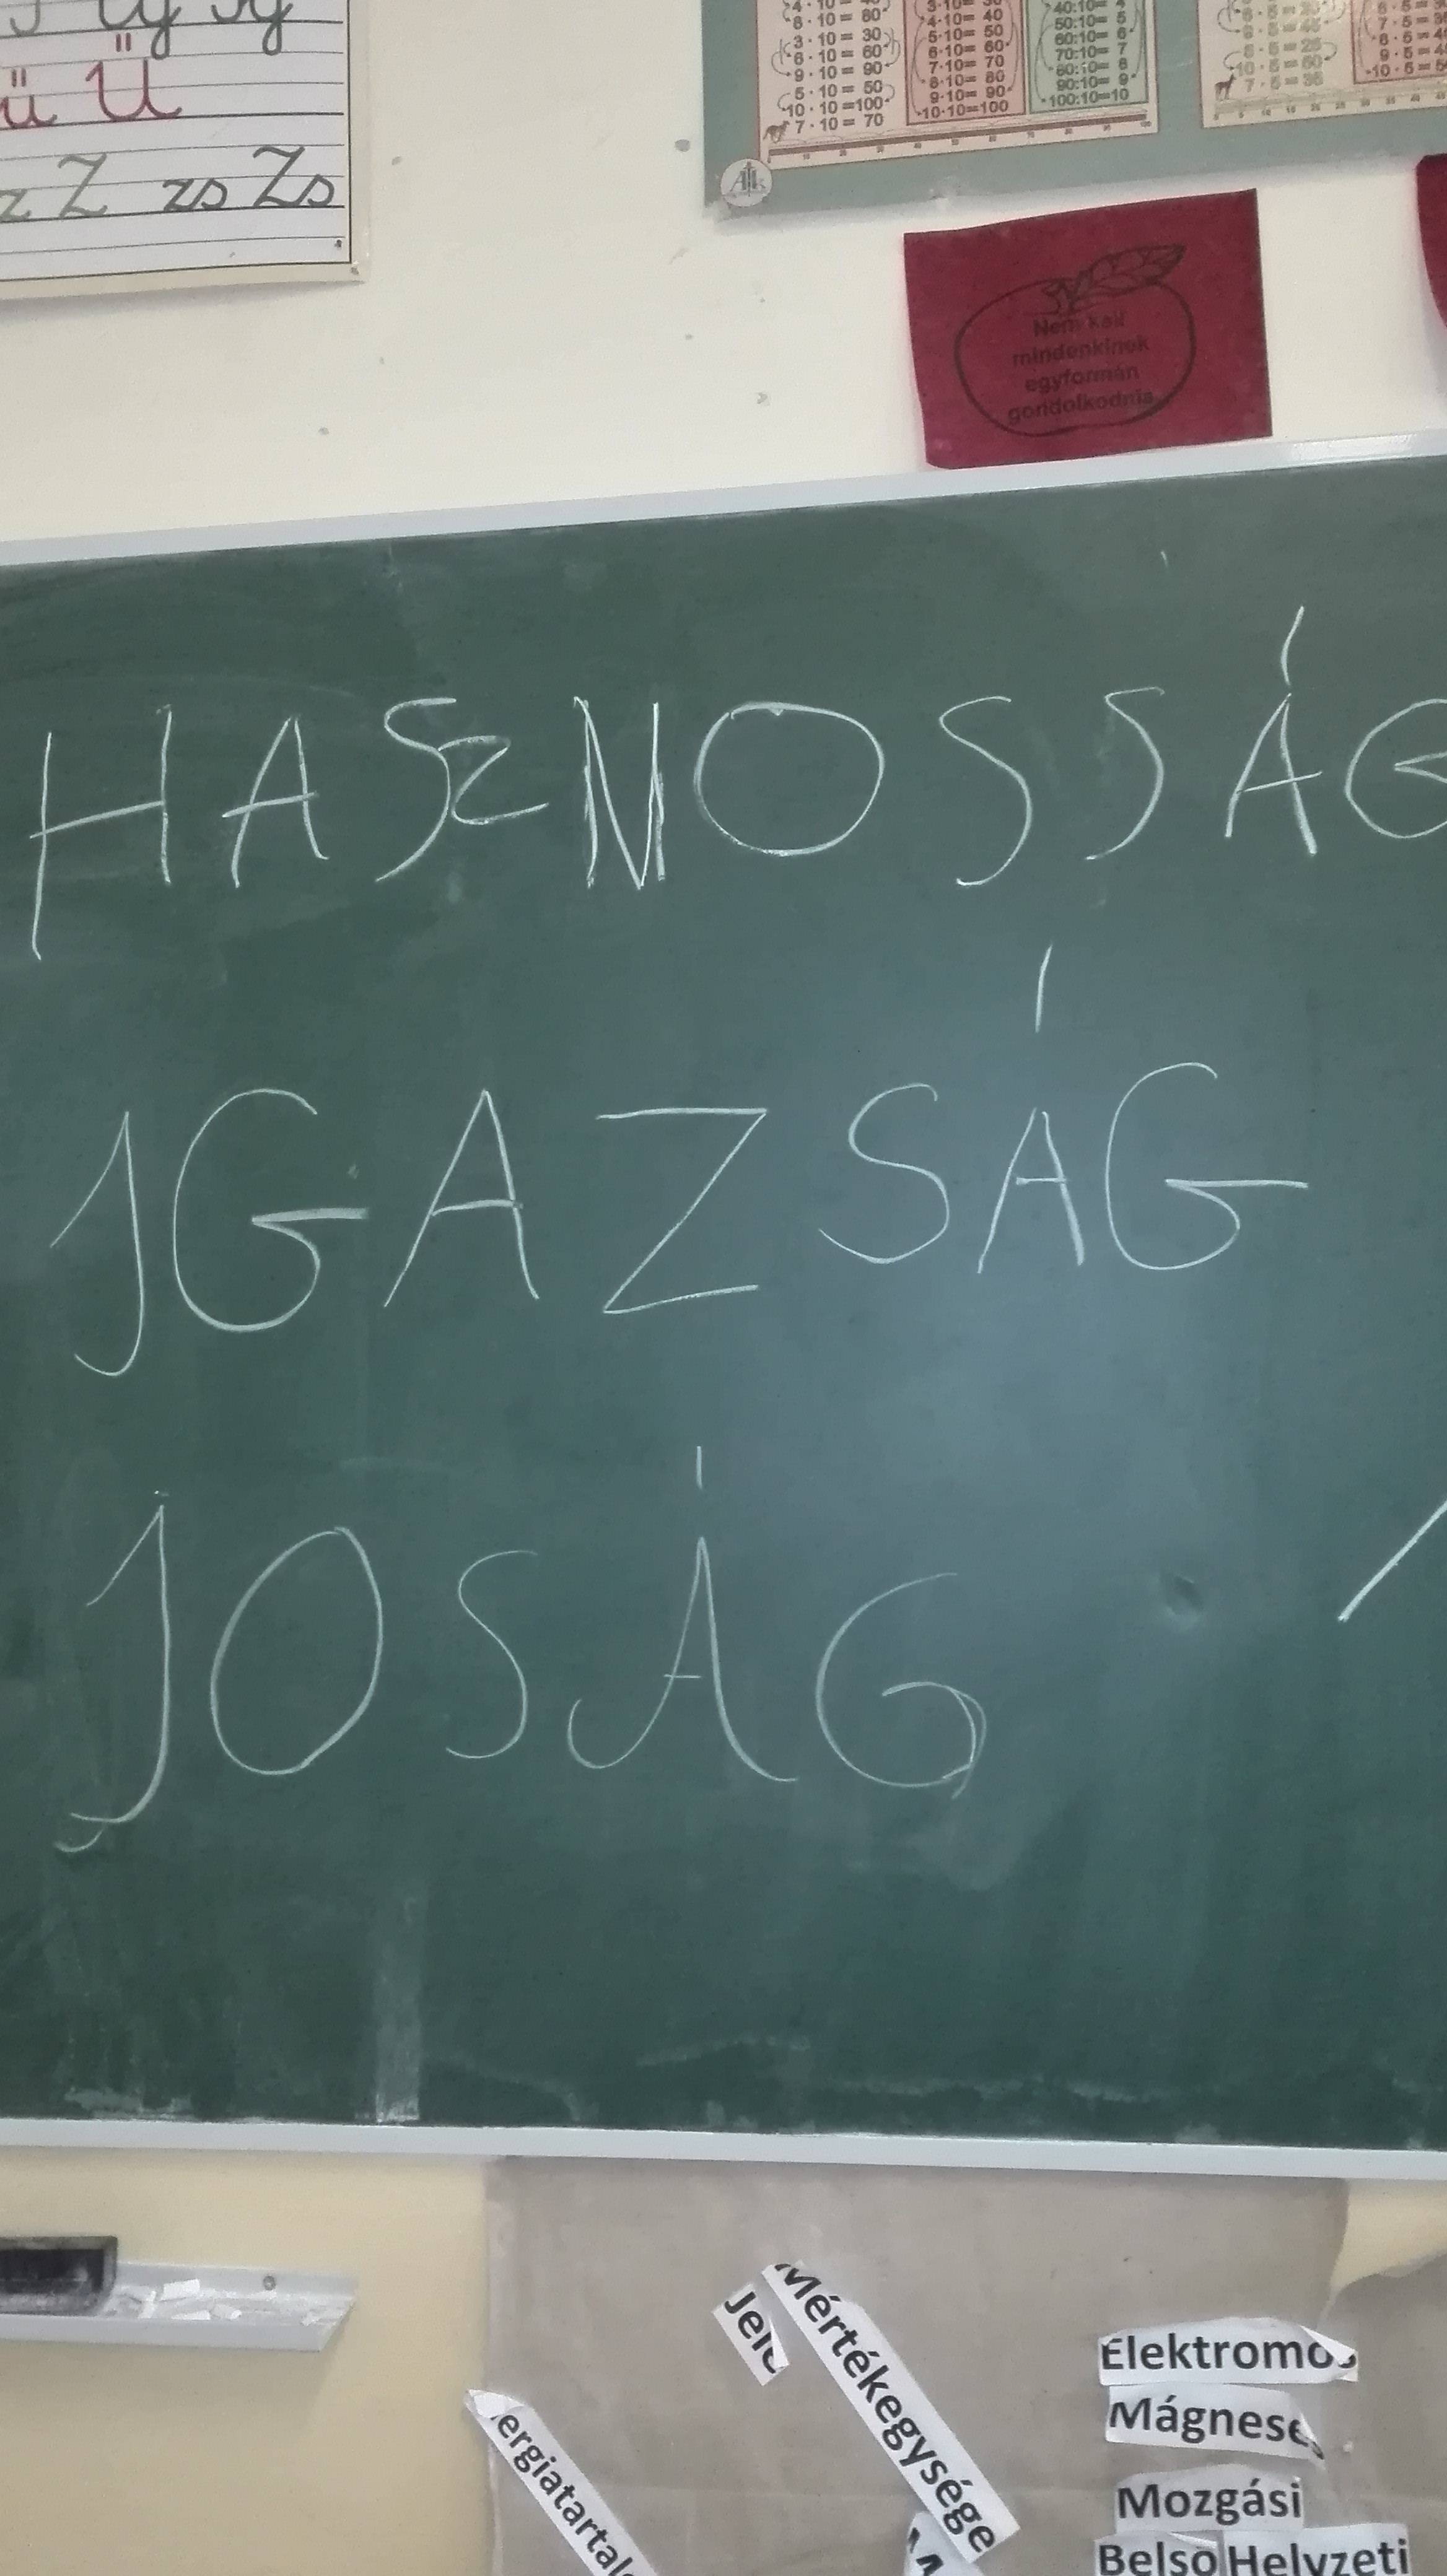 ü Ü
z Z zs Zs
8 · 10 = 80
3 · 10 = 30
6 · 10 = 60
9 · 10 = 90
5 · 10 = 50
10 · 10 =100
7 · 10 = 70
4·10= 40
5·10= 50
6·10= 60
7·10= 70
8·10= 80
9·10= 90
10·10=100
40:10= 4
50:10= 5
60:10= 6
70:10= 7
80:10= 8
90:10= 9
100:10=10
10 · 5 = 50
7 · 5 = 35
Nem kell
mindenkinek
egyformán
gondolkodnia
HASZNOSSÁG
IGAZSÁG
JOSÁG
Jele
Mértékegysége
ergiatartal
Elektromos
Mágneses
Mozgási
Belső Helyzeti